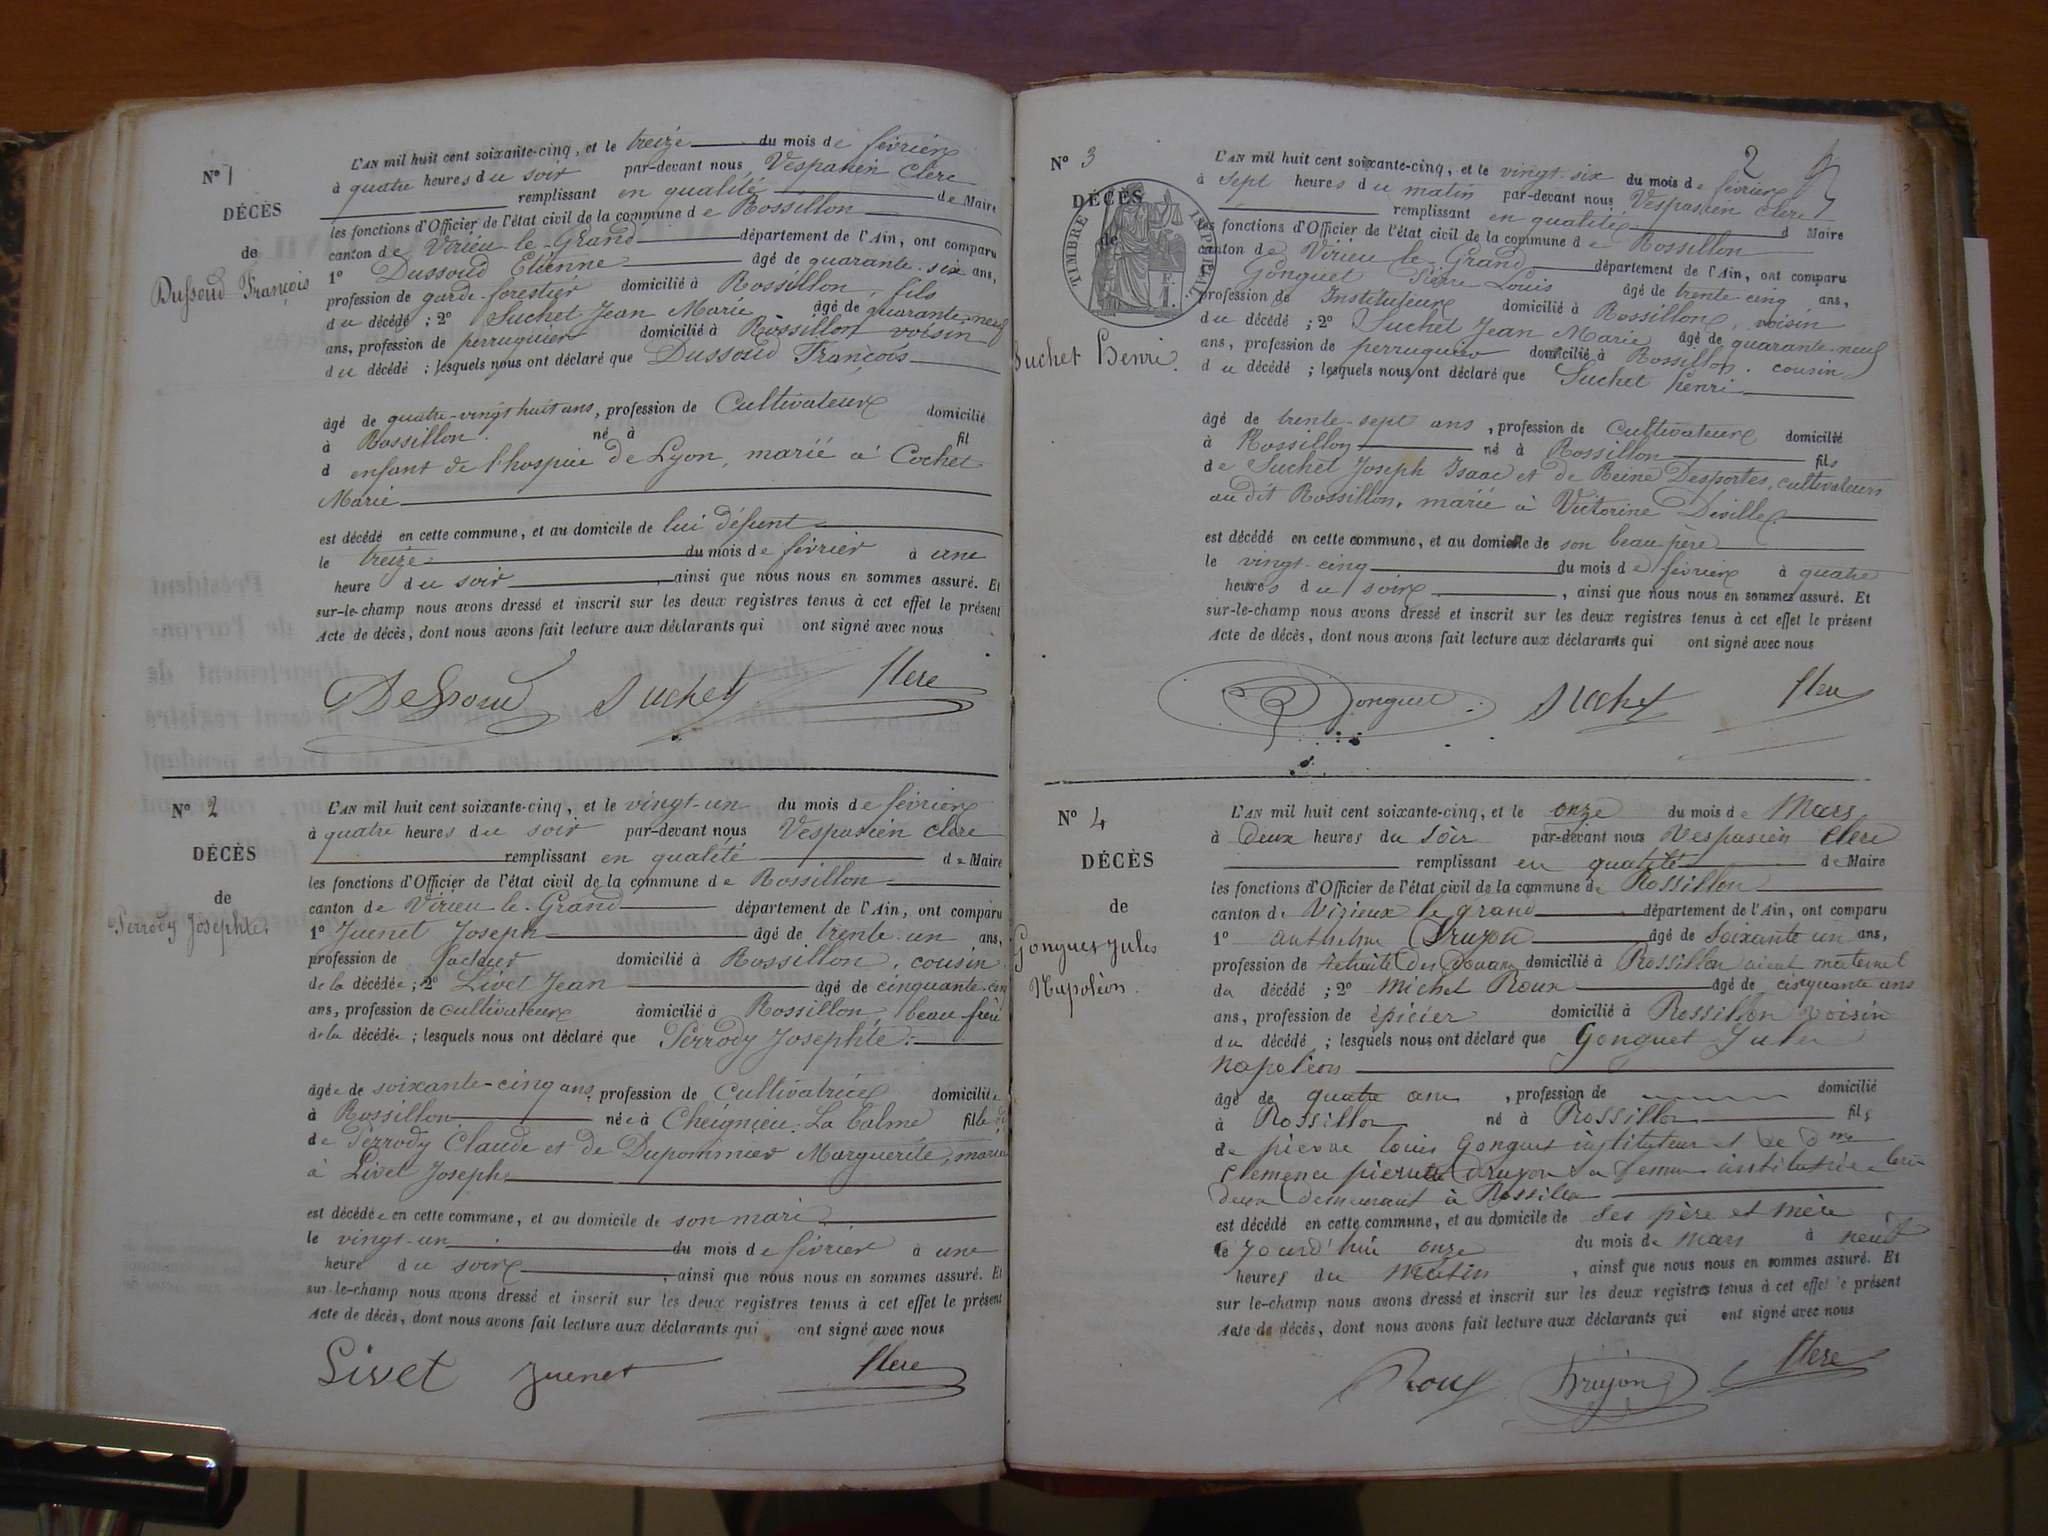 N° 1
DÉCÈS
de
Dussoud François
L'AN mil huit cent soixante-cinq, et le treize du mois de février
à quatre heures du soir par-devant nous, Vespasien Clere
remplissant en qualité de Maire
les fonctions d'Officier de l'état civil de la commune de Rossillon
canton de Virieu-le-Grand département de l'Ain, ont comparu
1° Dussoud Etienne âgé de quarante-six ans,
profession de garde-forestier domicilié à Rossillon, fils
du décédé ; 2° Suchet Jean Marie âgé de quarante-neuf
ans, profession de perruquier domicilié à Rossillon voisin
du décédé ; lesquels nous ont déclaré que Dussoud François
âgé de quatre-vingt huit ans, profession de Cultivateur domicilié
à Rossillon. né à fil
d enfant de l'hospice de Lyon, marié à Cochet
Marie
est décédé en cette commune, et au domicile de lui défunt
le treize du mois de février à une
heure du soir, ainsi que nous nous en sommes assuré. Et
sur-le-champ nous avons dressé et inscrit sur les deux registres tenus à cet effet le présent
Acte de décès, dont nous avons fait lecture aux déclarants qui ont signé avec nous
Suchet Clere
N° 2
DÉCÈS
de
Perrody Josephte
L'AN mil huit cent soixante-cinq, et le vingt-un du mois de février
à quatre heures du soir par-devant nous Vespasien Clere
remplissant en qualité de Maire
les fonctions d'Officier de l'état civil de la commune de Rossillon
canton de Virieu-le-Grand département de l'Ain, ont comparu
1° Juenet Joseph âgé de trente-un ans,
profession de facteur domicilié à Rossillon, cousin
de la décédée ; 2° Livet Jean âgé de cinquante-cinq
ans, profession de cultivateur domicilié à Rossillon, beau frère
de la décédée ; lesquels nous ont déclaré que Perrody Josephte
âgée de soixante-cinq ans, profession de Cultivatrice domiciliée
à Rossillon née à Cheignieu-La Balme fille
de Perrody Claude et de Dupommier Marguerite, mariée
à Livet Joseph
est décédée en cette commune, et au domicile de son mari
le vingt-un du mois de février à une
heure du soir, ainsi que nous nous en sommes assuré. Et
sur-le-champ nous avons dressé et inscrit sur les deux registres tenus à cet effet le présent
Acte de décès, dont nous avons fait lecture aux déclarants qui ont signé avec nous
Livet Juenet Clere
2
N° 3
DÉCÈS
de
TIMBRE IMPÉRIAL.
Suchet Henri
L'AN mil huit cent soixante-cinq, et le vingt-six du mois de février
à sept heures du matin par-devant nous Vespasien Clere
remplissant en qualité d Maire
les fonctions d'Officier de l'état civil de la commune de Rossillon
canton de Virieu-le-Grand département de l'Ain, ont comparu
Gonguet Pierre Louis âgé de trente-cinq ans,
profession de Instituteur domicilié à Rossillon, voisin
du décédé ; 2° Suchet Jean Marie âgé de quarante-neuf
ans, profession de perruquier domicilié à Rossillon, cousin
du décédé ; lesquels nous ont déclaré que Suchet henri
âgé de trente-sept ans, profession de Cultivateur domicilié
à Rossillon né à Rossillon fils
de Suchet Joseph Isaac et de Reine Desportes, cultivateurs
au dit Rossillon, marié à Victorine Deville
est décédé en cette commune, et au domicile de son beau père
le vingt-cinq du mois de février à quatre
heures du soir, ainsi que nous nous en sommes assuré. Et
sur-le-champ nous avons dressé et inscrit sur les deux registres tenus à cet effet le présent
Acte de décès, dont nous avons fait lecture aux déclarants qui ont signé avec nous
Gonguet Suchet Clere
N° 4
DÉCÈS
de
Gonguet Jules
Napoléon
L'AN mil huit cent soixante-cinq, et le onze du mois de Mars
à deux heures du soir par-devant nous Vespasien Clere
remplissant en qualité de Maire
les fonctions d'Officier de l'état civil de la commune de Rossillon
canton de Virieux le grand département de l'Ain, ont comparu
1° anthelme Drujon âgé de soixante un ans,
profession de retraité des douanes domicilié à Rossillon aieul maternel
du décédé ; 2° Michel Roux âgé de cinquante ans
ans, profession de épicier domicilié à Rossillon voisin
du décédé ; lesquels nous ont déclaré que Gonguet Jules
Napoléon
âgé de quatre ans, profession de domicilié
à Rossillon né à Rossillon fils
de pierre louis Gonguet instituteur et de dme
Clemence pierrette drujon sa femme institutrice
deux demeurant à Rossillon
est décédé en cette commune, et au domicile de ses père et mère
le jourd'hui onze du mois de mars à neuf
heures du matin, ainsi que nous nous en sommes assuré. Et
sur le-champ nous avons dressé et inscrit sur les deux registres tenus à cet effet le présent
Acte de décès, dont nous avons fait lecture aux déclarants qui ont signé avec nous
Roux Drujon Clere